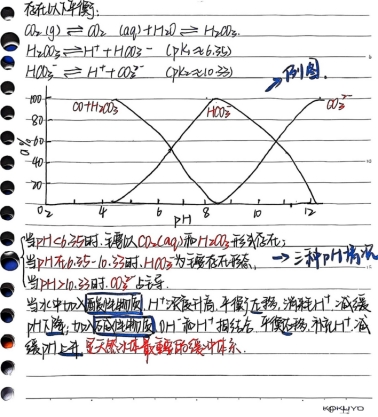 存在以下平衡:
CO₂(g) ⇌ CO₂ (aq)+H₂O ⇌ H₂CO₃.
H₂CO₃ ⇌ H⁺ + HCO₃⁻ (pK₁≈6.35)
HCO₃⁻ ⇌ H⁺+CO₃²⁻ (pK₂≈10.33)
→例图.
100
80
60
40
20
0
α%
CO+H₂CO₃
HCO₃⁻
CO₃²⁻
2 4 6 8 10 12
pH
当pH<6.35时.主要以CO₂(aq)和H₂CO₃形式存在;
当pH在6.35-10.33时.HCO₃⁻为主要存在形态,
→三种pH情况
当pH>10.33时.CO₃²⁻占主导.
当水中加入酸性物质,H⁺浓度升高,平衡左移,消耗H⁺.减缓
pH下降;加入碱性物质,OH⁻和H⁺相结合,平衡右移.补充H⁺.减
缓pH上升.是天然水体最重要的缓冲体系.
KOKUYO